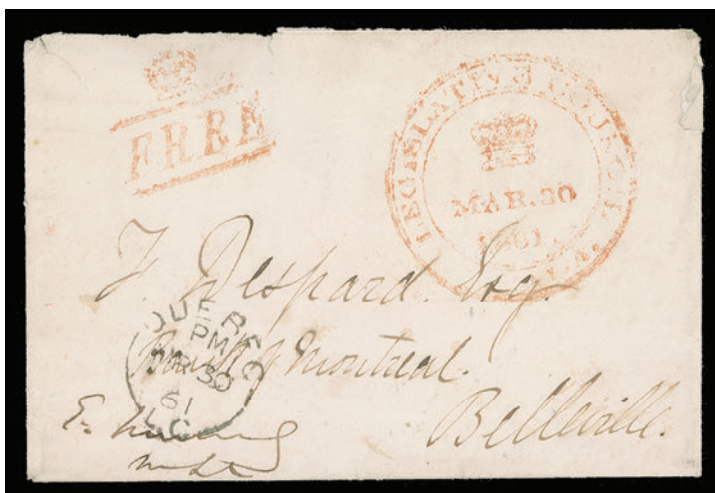 FREE
LEGISLATIVE COUNCIL
MAR. 30
1861.
F Despard. Esq.
Bank of Montreal.
Belleville.
QUEBEC
PM
MR 30
61
L.C
E.